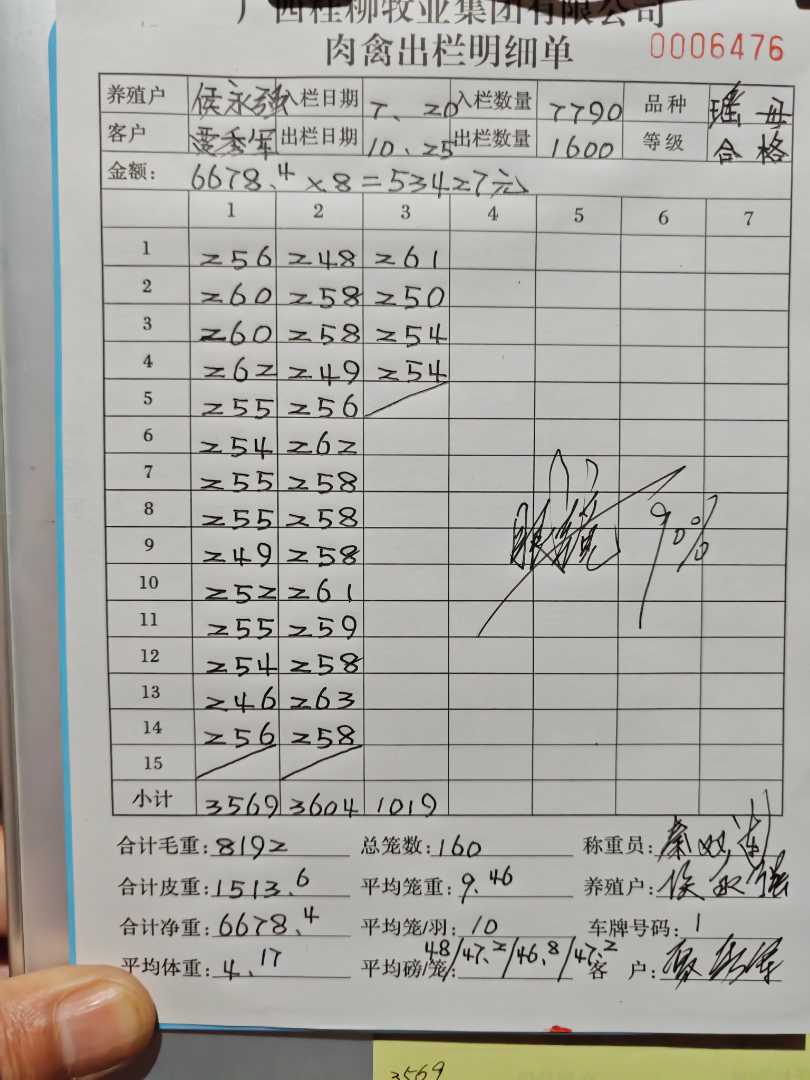 广西桂柳牧业集团有限公司
肉禽出栏明细单 0006476
养殖户 侯永强 入栏日期 7、20 入栏数量 7790 品种 瑶
客户 出栏日期 10、25 出栏数量 1600 等级 合格
金额: 6678.4×8=53427元
1 2 3 4 5 6 7
1 256 248 261
2 260 258 250
3 260 258 254
4 262 249 254
5 255 256
6 254 262
7 255 258
8 255 258
9 249 258
10 252 261
11 255 259
12 254 258
13 246 263
14 256 258
15
眼 90%
小计 3569 3604 1019
合计毛重: 8192 总笼数: 160 称重员: 秦
合计皮重: 1513.6 平均笼重: 9.46 养殖户: 侯永强
合计净重: 6678.4 平均笼/羽: 10 车牌号码: 1
平均体重: 4.17 平均磅/笼: 48/47.2/46.8/47.2 客户:
3569